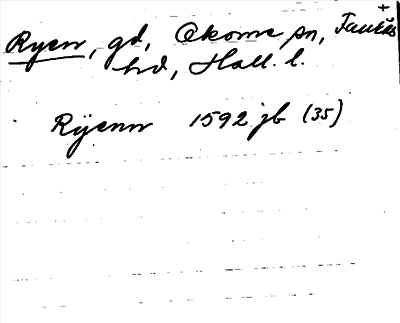 Ryen, gd, Okome sn, Faurås
hd, Hall. l.
Rÿenn 1592 jb (35)